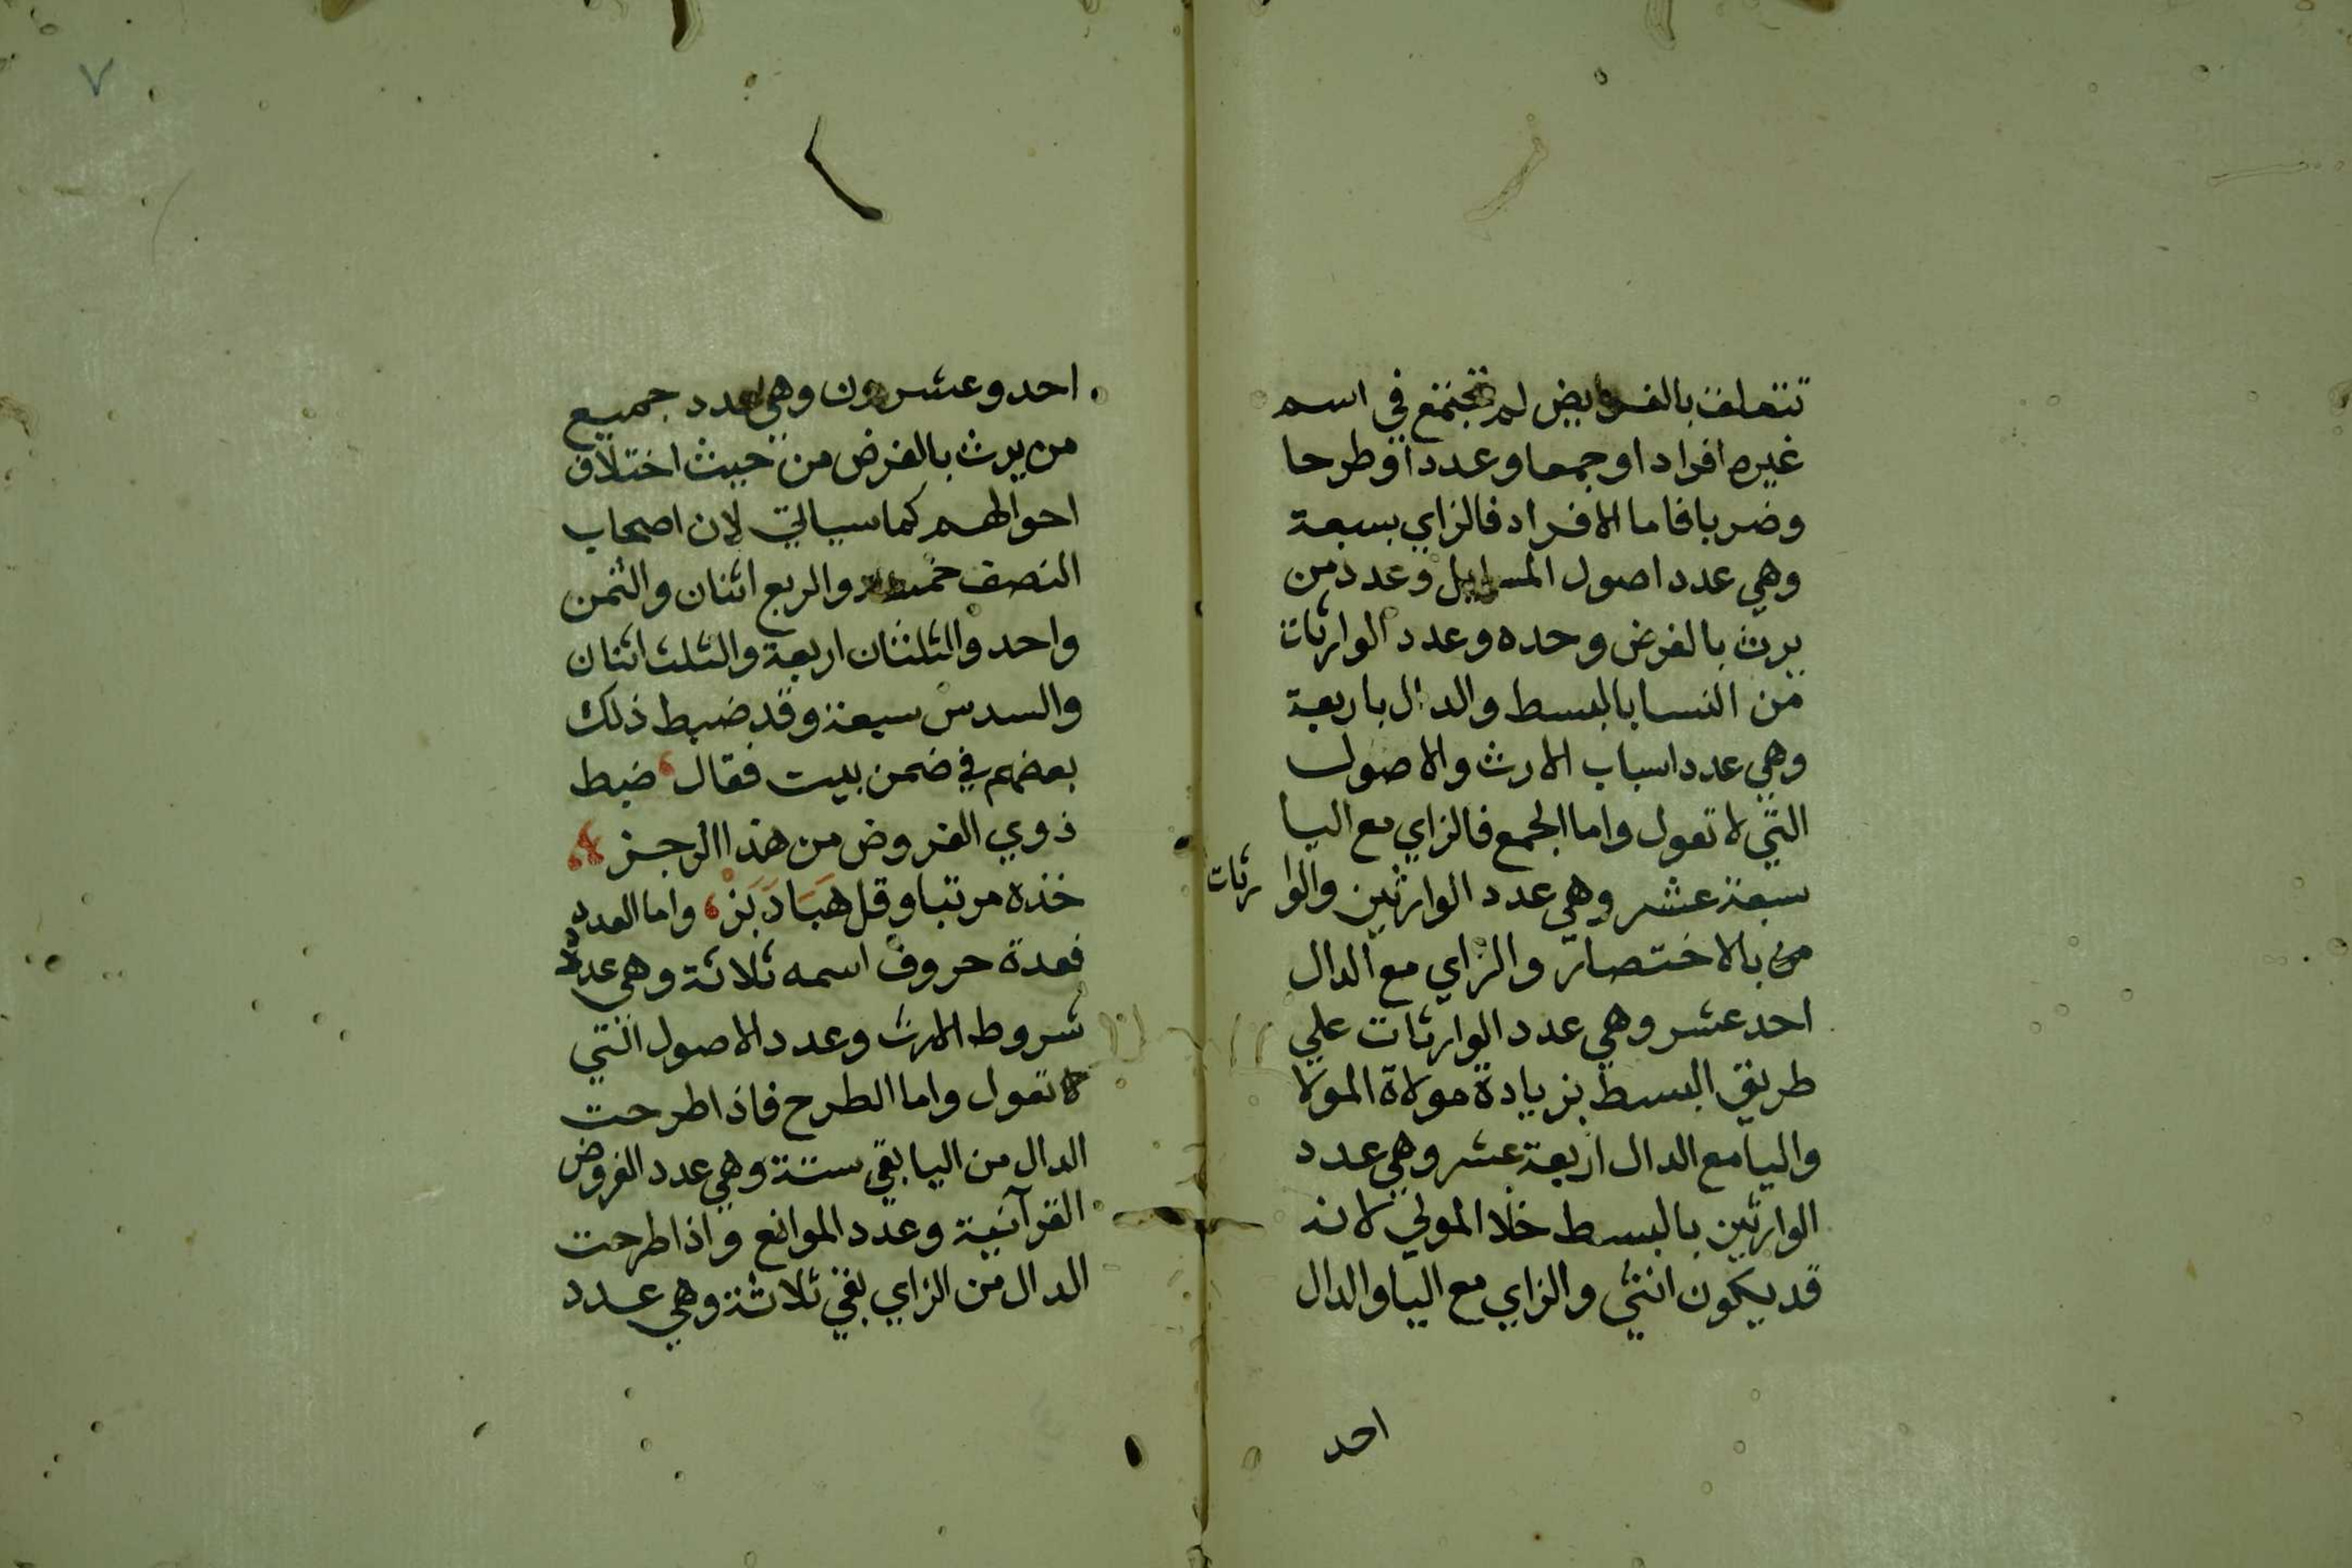 تتعلق بالفرايض لم تجتمع في اسم
غيره افرادا وجمعا وعددا وطرحا
وضربا فاما الافراد فالزاي بسبعة
وهي عدد اصول المسايل وعدد من
يرث بالفرض وحده وعدد الوارثات
من النسا بالبسط والدال باربعة
وهي عدد اسباب الارث والاصول
التي لا تعول واما الجمع فالزاي مع اليا
سبعة عشر وهي عدد الوارثين والوارثات
من بالاختصار والزاي مع الدال
احد عشر وهي عدد الوارثات علي
طريق البسط بزيادة مولاة المولا
واليا مع الدال اربعة عشر وهي عدد
الوارثين بالبسط خلا المولي لانه
قد يكون انثي والزاي مع اليا والدال
احد
٧
احد وعشرون وهي عدد جميع
من يرث بالفرض من حيث اختلاف
احوالهم كما سياتي لان اصحاب
النصف خمسة والربع اثنان والثمن
واحد والثلثان اربعة والثلث اثنان
والسدس سبعة وقد ضبط ذلك
بعضهم في ضمن بيت فقال ، ضبط
ذوي الفروض من هذا الرجز
خذه مرتبا وقل هَبَادَبَزْ ، واما العدد
فعدة حروف اسمه ثلاثة وهي عدد
شروط الارث وعدد الاصول التي
لا تعول واما الطرح فاذا طرحت
الدال من اليا بقي ستة وهي عدد الفروض
القرآنية وعدد الموانع واذا طرحت
الدال من الزاي بقي ثلاثة وهي عدد